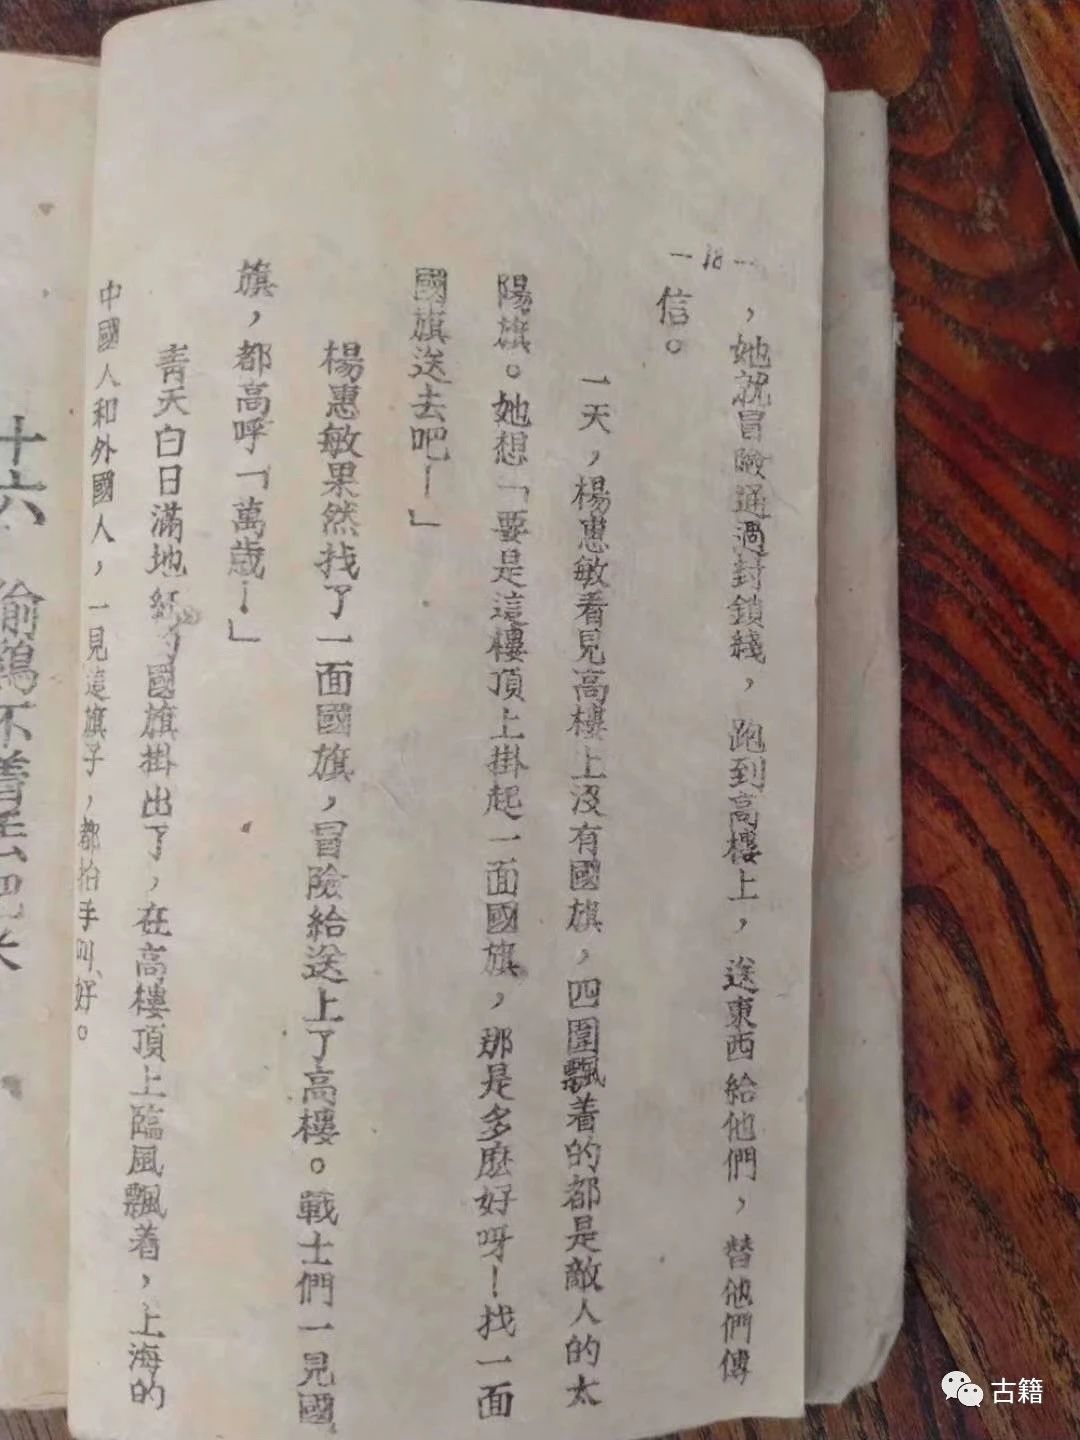 —18—
，她就冒險通過封鎖綫，跑到高樓上，送東西給他們，替他們傳
信。
一天，楊惠敏看見高樓上沒有國旗，四圍飄着的都是敵人的太
陽旗。她想「要是這樓頂上掛起一面國旗，那是多麽好呀！找一面
國旗送去吧！」
楊惠敏果然找了一面國旗，冒險給送上了高樓。戰士們一見國
旗，都高呼「萬歲！」
青天白日滿地紅的國旗掛出了，在高樓頂上臨風飄着，上海的
中國人和外國人，一見這旗子，都拍手叫好。
十六 偷鷄不着蝕把米
古籍